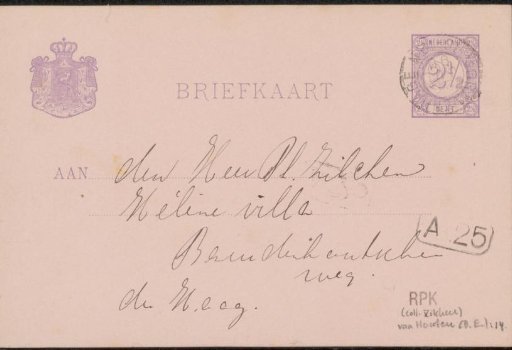 NEDERLAND
2½
CENT
BRIEFKAART
AAN
den Heer Ph. Zilcken
Hélène villa
Bezuidenhoutsche
weg.
den Haag.
A 25
RPK
(coll. Zilcken)
van Houten (B.E.): 14.